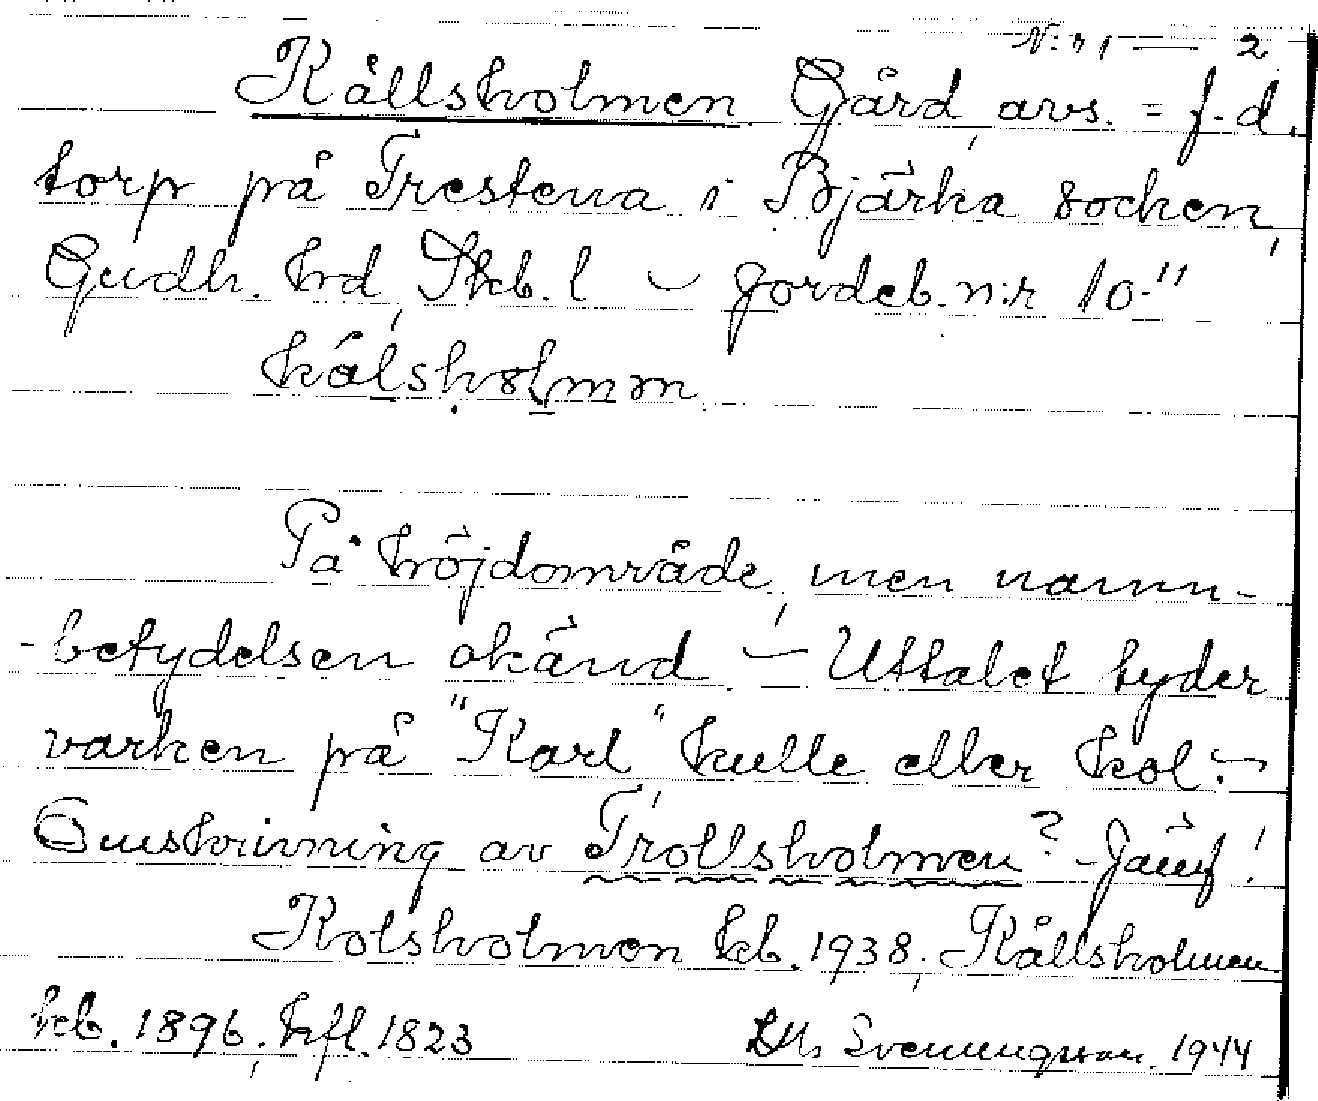 N:r 1 — 2
Kållsholmen Gård, avs. = f.d.
torp på Trestena i Bjärka socken,
Gudh. hrd, Skb. l — Jordeb. n:r 10."
kålshọlmɘn
På höjdområde, men namn-
-betydelsen okänd. — Uttalet tyder
varken på "Karl" kulle eller kol. —
Omskrivning av Trollsholmen? - Jämf!
Kolsholmen kb. 1938, Kållsholmen
kb. 1896, hfl. 1823 Svenungsson. 1944